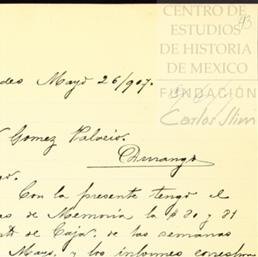 CENTRO DE
ESTUDIOS
DE HISTORIA
DE MEXICO
FUNDACIÓN
Carlos Slim
93
des Mayo 26/907.
Gomez Palacio.
Durango
Con la presente tengo el
as de Memoria la $ 20 y 21
de Caja, de las semanas
Mayo, y los informes